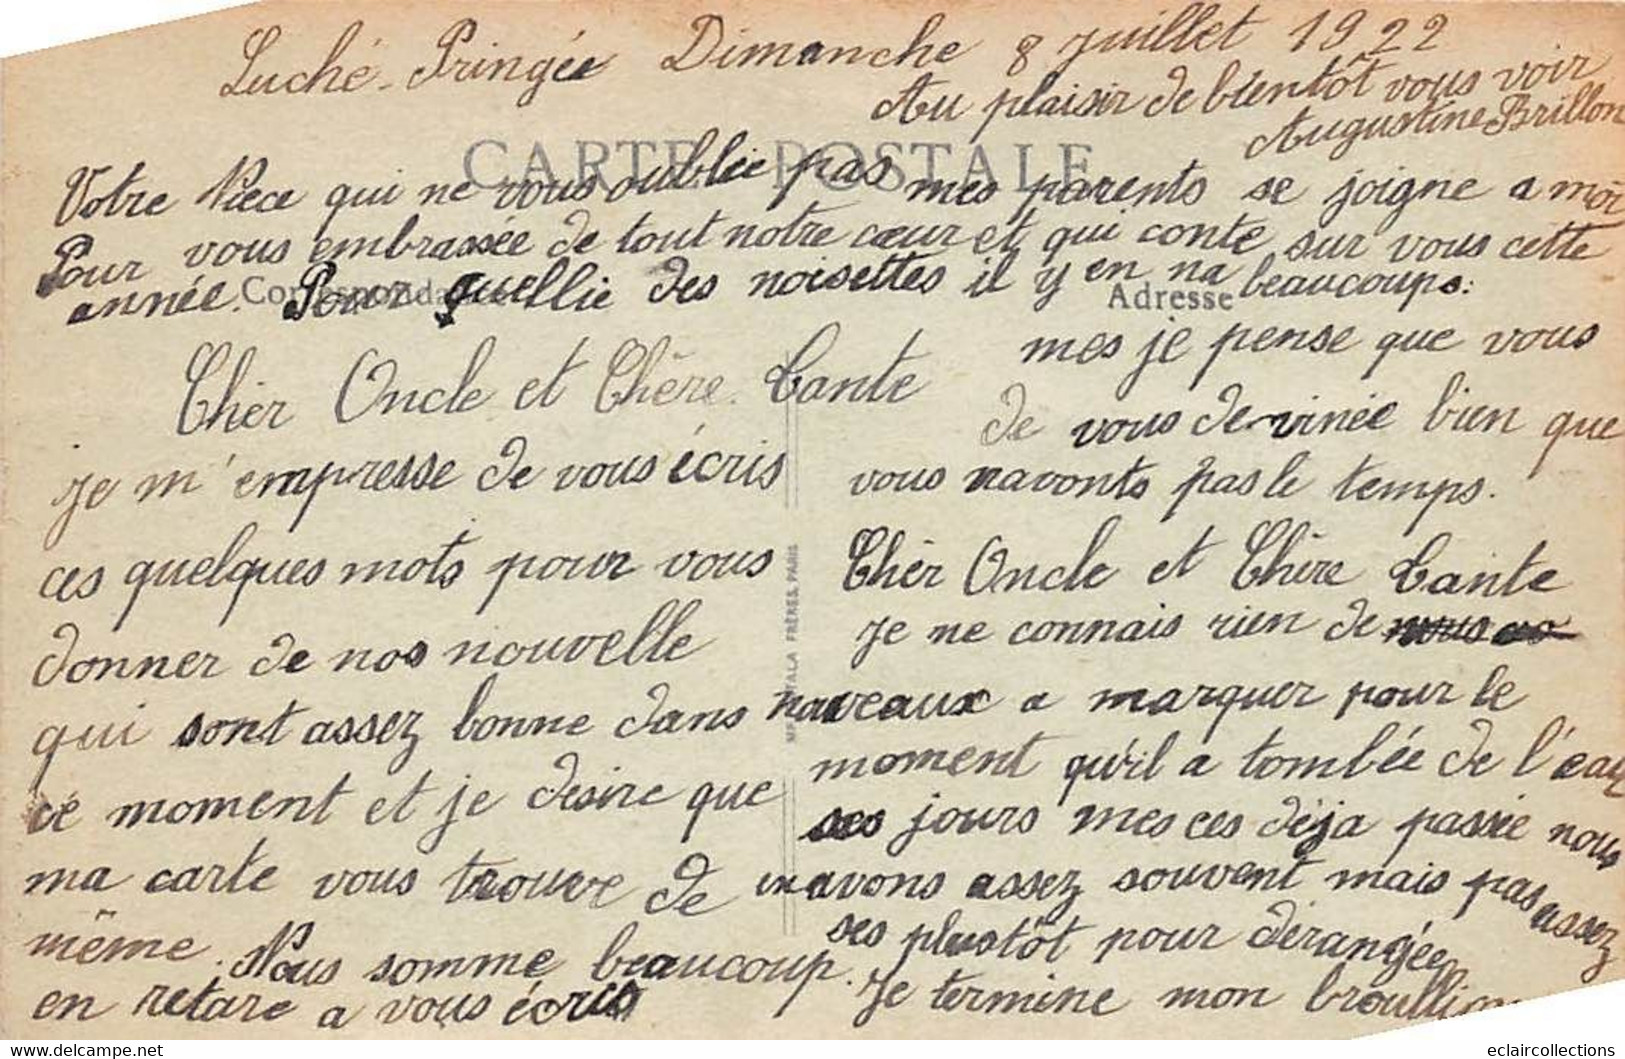 Luché-Pringée Dimanche 8 Juillet 1922
Au plaisir de bientôt vous voir
Augustine Brillon
CARTE POSTALE
Votre Nièce qui ne vous oublie pas mes parents se joigne a moi
Pour vous embrassée de tout notre cœur et qui conte sur vous cette
année. quellie des noisettes il y en na beaucoups:
Correspondance
Adresse
Cher Oncle et Chère Tante
je m'empresse de vous écris
ces quelques mots pour vous
donner de nos nouvelle
qui sont assez bonne dans
ce moment et je désire que
ma carte vous trouve de
même. Nous somme beaucoup
en retare a vous écris
mes je pense que vous
de vous devinée bien que
vous navonts pas le temps.
Cher Oncle et Chère Tante
Je ne connais rien de
naveaux a marquer pour le
moment qu'il a tombée de l'eau
ses jours mes ces déja passée nous
en avons assez souvent mais pas assez
ses plustôt pour dérangée
Je termine mon
FRÈRES, PARIS
eclaircollections